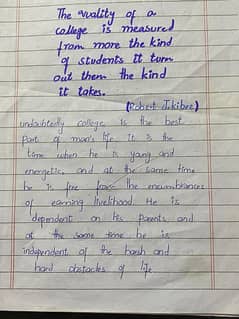 The quality of a
college is measured
from more the kind
of students tt turn
out them the kind
it takes.
(Robert J.kibee)
undoubtedly college is the best
part of man's life it is the
time when he is young and
energetic, and at the same time
he is free from the encumbrances
of earning livelihood. He is
dependent on his parents and
at the same time he is
independent of the harsh and
hard obstacles of life